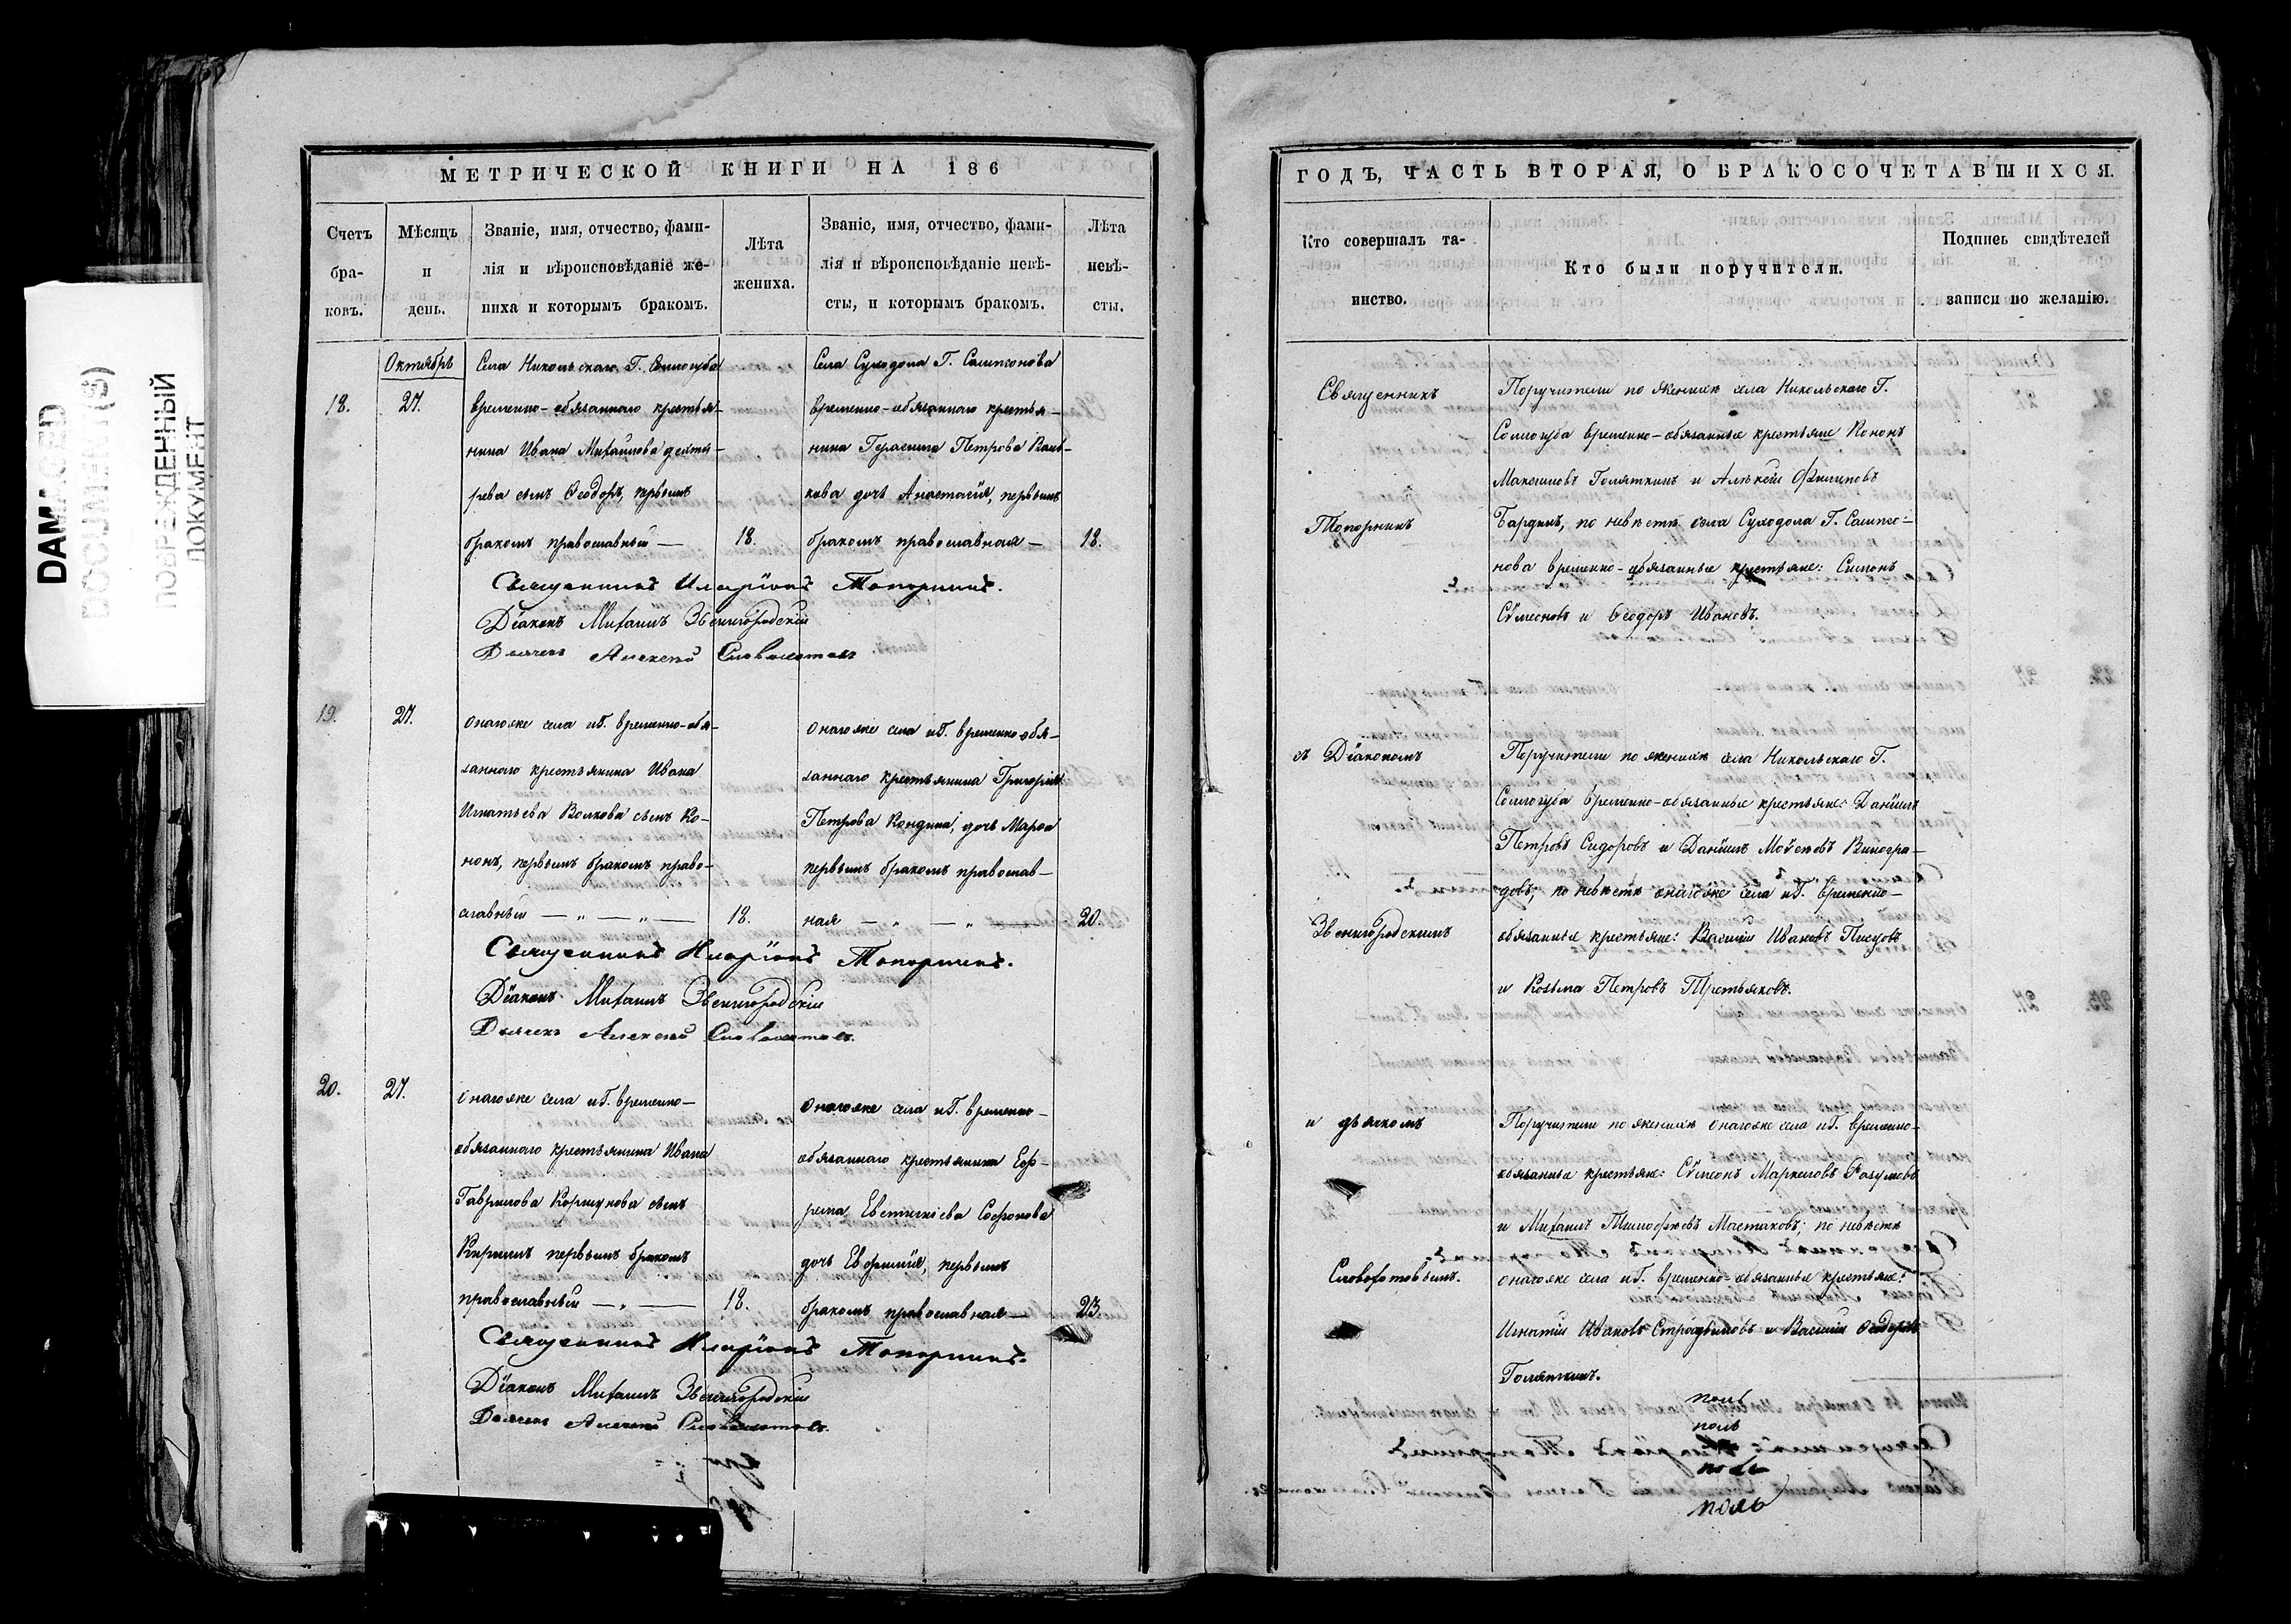 DAMAGED
DOCUMENT(S)
ПОВРЕЖДЕННЫЙ
ДОКУМЕНТ
МЕТРИЧЕСКОЙ КНИГИ НА 186
Счетъ бра-ковъ.
Мѣсяцъ и день.
Званіе, имя, отчество, фами-
лія и вѣроисповѣданіе же-
ниха и которымъ бракомъ.
Лѣта жениха.
Званіе, имя, отчество, фами-
лія и вѣроисповѣданіе невѣ-
сты, и которымъ бракомъ.
Лѣта невѣ-сты.
Октябрь
18.
27.
Села Никольскаго Г. Соллогуба
временно-обязаннаго крестья-
нина Ивана Михайлова
сынъ Ѳеодоръ, первымъ
бракомъ православный —
18.
Села Суходола Г. Сампсонова
временно-обязаннаго крестья-
нина Герасима Петрова
дочь Анастасія, первымъ
бракомъ православная —
18.
Священникъ Иларіонъ Топорнинъ.
Діаконъ Михаилъ Звенигородскій
Дьячекъ Алексей Словохотовъ
19.
27.
Онагоже села и Г. временно-обя-
заннаго крестьянина Ивана
Игнатьева Волкова сынъ Ко-
нонъ, первымъ бракомъ право-
славный — „ — „ —
18.
Онагоже села и Г. временно-обя-
заннаго крестьянина Григорія
Петрова Кондина, дочь Марѳа
первымъ бракомъ православ-
ная — „ — „ —
20.
Священникъ Иларіонъ Топорнинъ.
Діаконъ Михаилъ Звенигородскій
Дьячекъ Алексей Словохотовъ.
20.
27.
Онагоже села и Г. временно-
обязаннаго крестьянина Ивана
Гаврилова Коршунова сынъ
Кириллъ первымъ бракомъ
православный — „ —
18.
Онагоже села и Г. временно-
обязаннаго крестьянина Еф-
рема Евстихіева Софонова
дочь Евфимія, первымъ
бракомъ православная —
23.
Священникъ Иларіонъ Топорнинъ.
Діаконъ Михаилъ Звенигородскій
Дьячекъ Алексей Словохотовъ.
ГОДЪ, ЧАСТЬ ВТОРАЯ, О БРАКОСОЧЕТАВШИХСЯ.
Кто совершалъ та-
инство.
Кто были поручители.
Подпись свидѣтелей
записи по желанію.
Священникъ
Топорнинъ
Поручители по женихѣ села Никольскаго Г.
Соллогуба временно-обязанные крестьяне Кононъ
Максимовъ Голяткинъ и Алексѣй Филиповъ
Бардинъ, по невѣстѣ села Суходола Г. Сампсо-
нова временно-обязанные крестьяне: Симонъ
Сѵмеоновъ и Ѳеодоръ Ивановъ.
съ Діакономъ
Поручители по женихѣ села Никольскаго Г.
Соллогуба временно-обязанные крестьяне: Даніилъ
Петровъ Сидоровъ и Даніилъ Моѵсеовъ Виногра-
довъ; по невѣстѣ онагоже села и Г. временно-
Звенигородскимъ
обязанные крестьяне: Василій Ивановъ Писцовъ
и Козьма Петровъ Третьяковъ.
и дьячкомъ
Поручители по женихѣ онагоже села и Г. временно-
обязанные крестьяне: Сѵмеонъ Маркеловъ Разумовъ
и Михаилъ Тимофѣевъ Мастаковъ; по невѣстѣ
Словохотовымъ.
онагоже села и Г. временно-обязанные крестьяне:
Игнатій Ивановъ и Василій Ѳедоровъ
Голяткинъ.
ноль
ноль
ноль
ноль